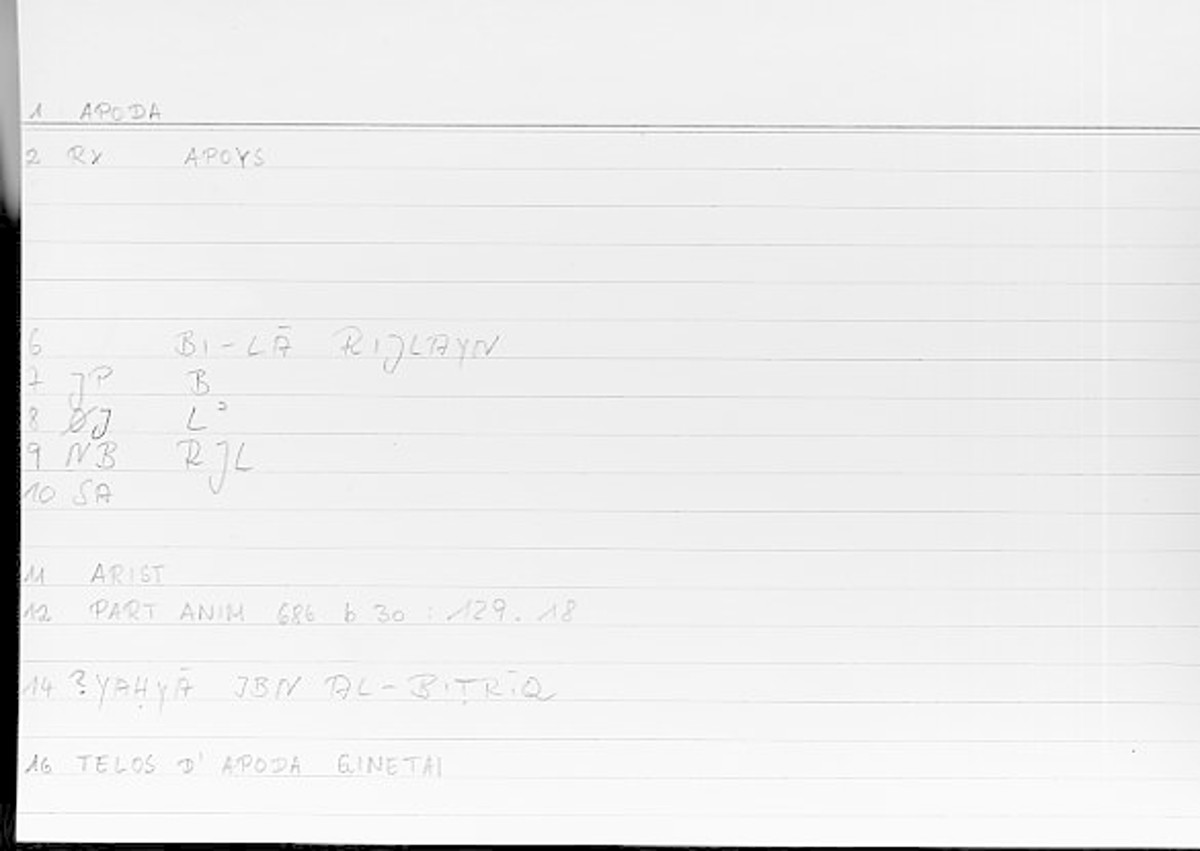 1 APODA
2 RX APOYS
6 BI-LĀ RIJLAYN
7 JP B
8 ØJ Lʾ
9 NB RJL
10 SA
11 ARIST
12 PART ANIM 686 b 30 : 129.18
14 ? YAḤYĀ IBN AL-BIṬRĪQ
16 TELOS D' APODA GINETAI